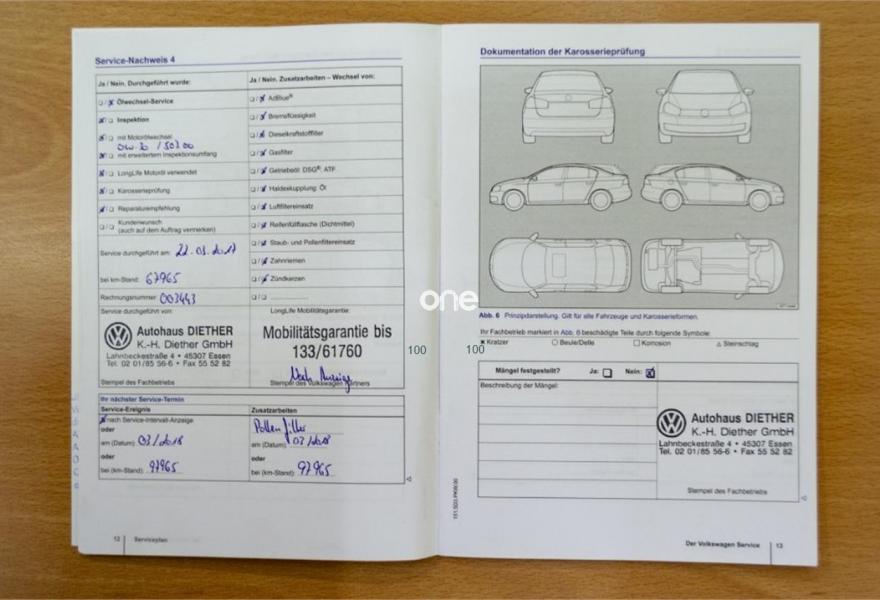 Service-Nachweis 4
Ja / Nein. Durchgeführt wurde:
Ölwechsel-Service
Inspektion
mit Motorölwechsel
mit erweitertem Inspektionsumfang
LongLife Motoröl verwendet
Karosserieprüfung
Reparaturempfehlung
Kundenwunsch
(auch auf dem Auftrag vermerken)
Service durchgeführt am: 22.03.2017
bei km-Stand: 67965
Rechnungsnummer 003443
Service durchgeführt von:
Autohaus DIETHER
K.-H. Diether GmbH
Lahnbeckestraße 4 • 45307 Essen
Tel. 02 01/85 56-6 • Fax 55 52 82
Stempel des Fachbetriebs
Ja / Nein. Zusatzarbeiten – Wechsel von:
AdBlue®
Bremsflüssigkeit
Dieselkraftstofffilter
Gasfilter
Getriebeöl: DSG®, ATF
Haldexkupplung: Öl
Luftfiltereinsatz
Reifenfüllflasche (Dichtmittel)
Staub- und Pollenfiltereinsatz
Zahnriemen
Zündkerzen
LongLife Mobilitätsgarantie:
Mobilitätsgarantie bis
133/61760
Nach Anzeige
Stempel des Volkswagen Partners
Ihr nächster Service-Termin
Service-Ereignis
nach Service-Intervall-Anzeige
oder
am (Datum) 03/2018
oder
bei (km-Stand) 97965
Zusatzarbeiten
Pollenfilter
am (Datum) 03/2018
oder
bei (km-Stand) 97965
12 Serviceplan
one
100 100
Dokumentation der Karosserieprüfung
Abb. 6 Prinzipdarstellung. Gilt für alle Fahrzeuge und Karosserieformen.
Ihr Fachbetrieb markiert in Abb. 6 beschädigte Teile durch folgende Symbole:
Kratzer Beule/Delle Korrosion Steinschlag
Mängel festgestellt? Ja: Nein:
Beschreibung der Mängel:
Autohaus DIETHER
K.-H. Diether GmbH
Lahnbeckestraße 4 • 45307 Essen
Tel. 02 01/85 56-6 • Fax 55 52 82
Stempel des Fachbetriebs
Der Volkswagen Service 13